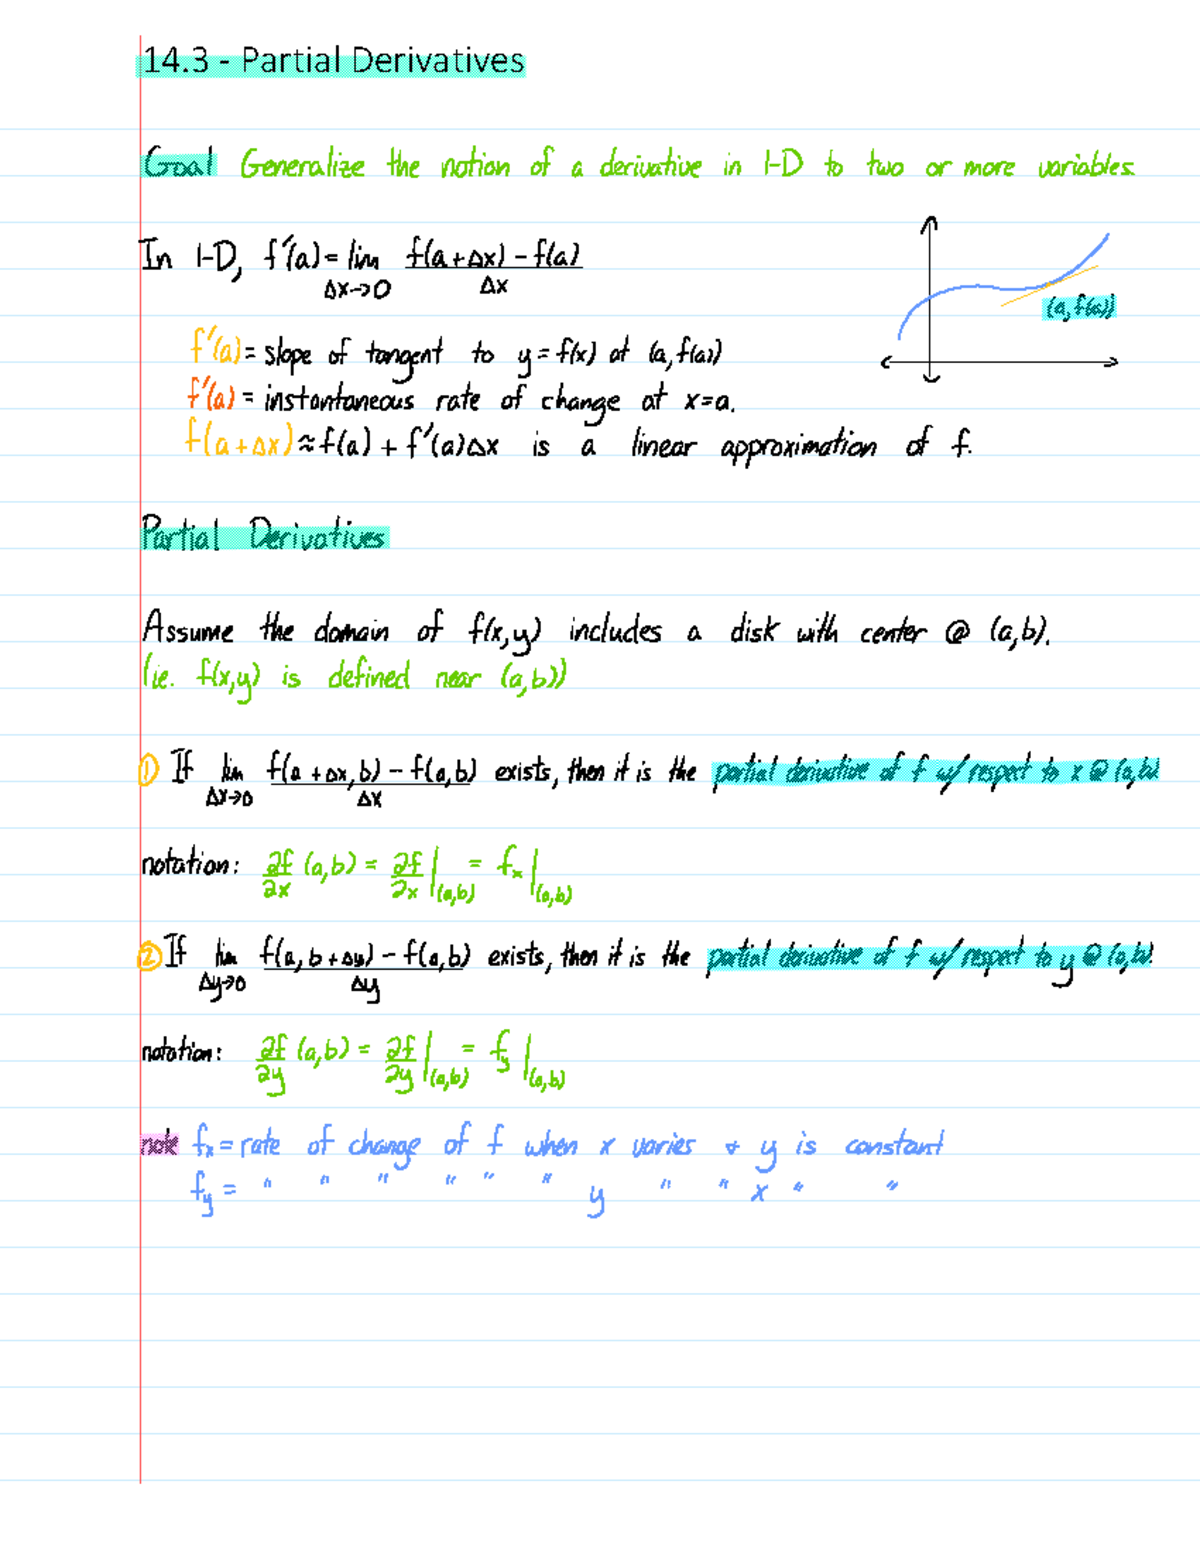 14.3 - Partial Derivatives
Goal Generalize the notion of a derivative in 1-D to two or more variables.
In 1-D, f'(a) = lim f(a+Δx) - f(a)
Δx→0 Δx
(a, f(a))
f'(a) = slope of tangent to y = f(x) at (a, f(a))
f'(a) = instantaneous rate of change at x=a.
f(a+Δx) ≈ f(a) + f'(a)Δx is a linear approximation of f.
Partial Derivatives
Assume the domain of f(x,y) includes a disk with center @ (a,b).
(ie. f(x,y) is defined near (a,b))
① If lim f(a+Δx, b) - f(a,b) exists, then it is the partial derivative of f w/ respect to x @ (a,b)
Δx→0 Δx
notation: ∂f/∂x (a,b) = ∂f/∂x |(a,b) = fx |(a,b)
② If lim f(a, b+Δy) - f(a,b) exists, then it is the partial derivative of f w/ respect to y @ (a,b).
Δy→0 Δy
notation: ∂f/∂y (a,b) = ∂f/∂y |(a,b) = fy |(a,b)
note fx = rate of change of f when x varies + y is constant
fy = " " " " " " y " " x " "